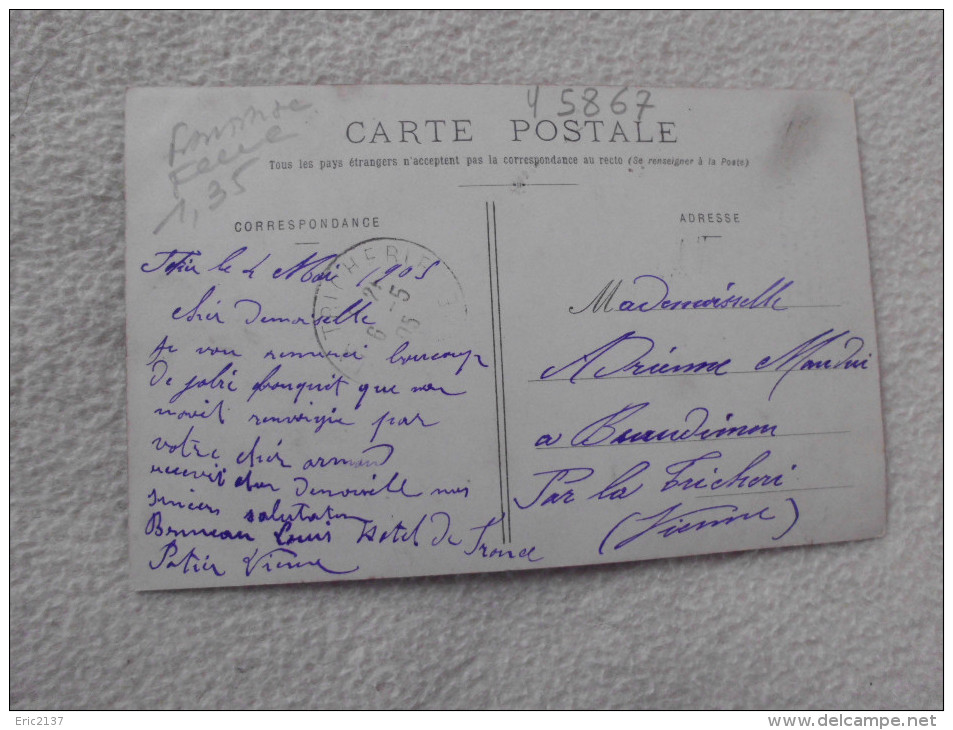 Y 5867
1,35
CARTE POSTALE
Tous les pays étrangers n'acceptent pas la correspondance au recto (Se renseigner à la Poste)
CORRESPONDANCE
ADRESSE
le 4 Mai 1905
chér Demoiselle
Je vou remerci baucoup
De joli bouquit que
par
votre chér armand
Demoisell mes
sincers salutation
Bruneau Louis Hotel De France
Potier Vienne
TRICHERIE
6 -5
05
Mademoiselle
Adrienne
a Beaudimon
Par la Tricheri
(Vienne)
Eric2137
www.delcampe.net